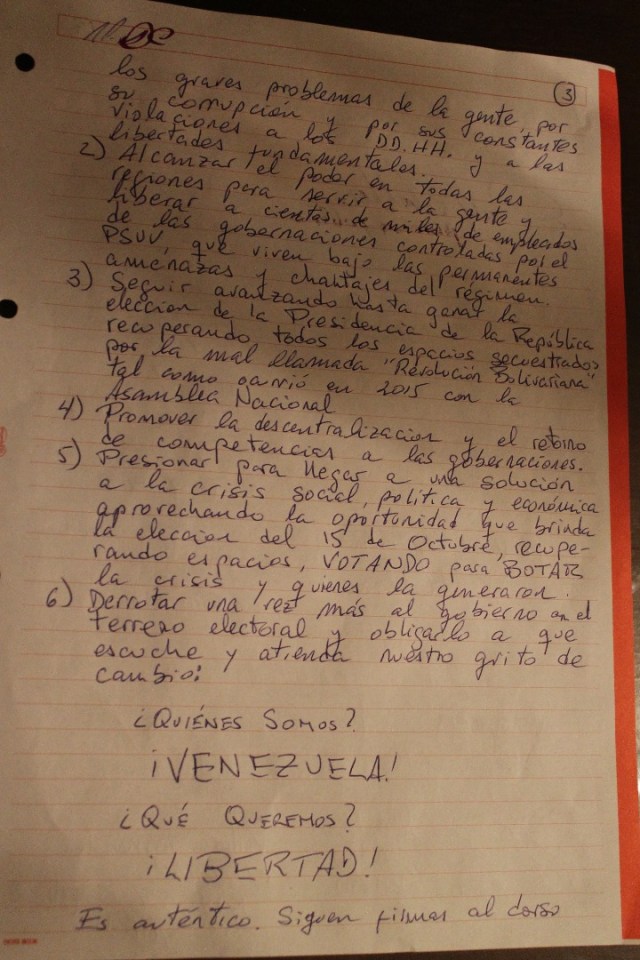 3
los graves problemas de la gente, por
su corrupción y por sus constantes
violaciones a los DD.HH. y a las
libertades fundamentales.
2) Alcanzar el poder en todas las
regiones para servir a la gente y
liberar a cientos de miles de empleados
de las gobernaciones controladas por el
PSUV, que viven bajo las permanentes
amenazas y chantajes del régimen.
3) Seguir avanzando hasta ganar la
elección de la Presidencia de la República
recuperando todos los espacios secuestrados
por la mal llamada "Revolución Bolivariana"
tal como ocurrió en 2015 con la
Asamblea Nacional
4) Promover la descentralización y el retorno
de competencias a las gobernaciones.
5) Presionar para llegar a una solución
a la crisis social, política y económica
aprovechando la oportunidad que brinda
la elección del 15 de Octubre, recupe-
rando espacios, VOTANDO para BOTAR
la crisis y quienes la generaron.
6) Derrotar una vez más al gobierno en el
terreno electoral y obligarlo a que
escuche y atienda nuestro grito de
cambio:
¿QUIÉNES SOMOS?
¡VENEZUELA!
¿QUÉ QUEREMOS?
¡LIBERTAD!
Es auténtico. Siguen firmas al dorso